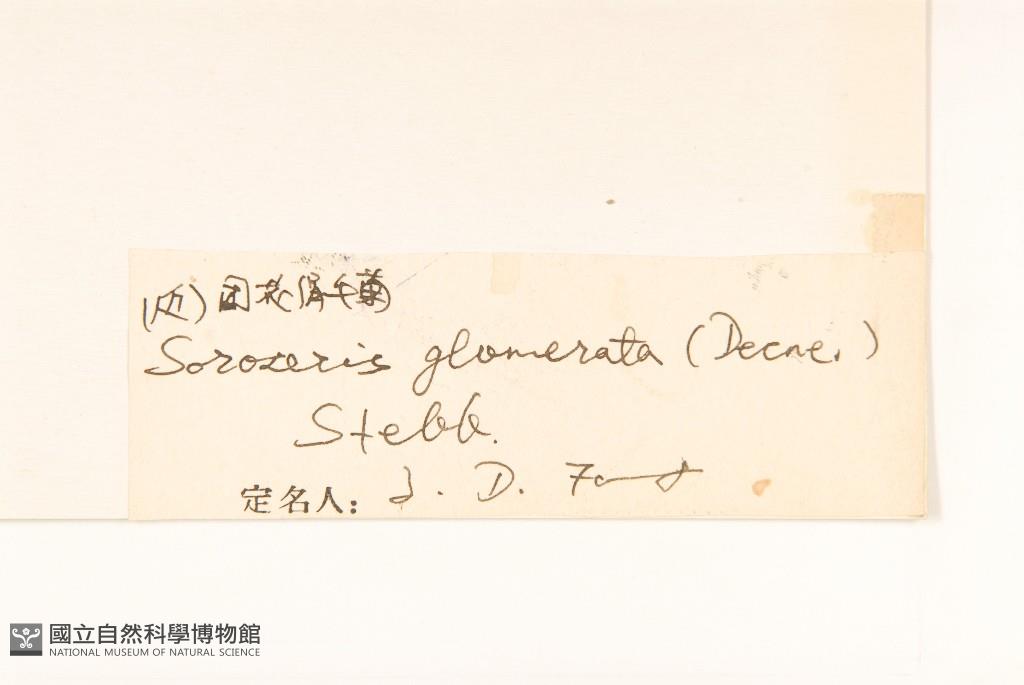 Soroseris glomerata (Decne.)
Stebb.
定名人: J. D.
國立自然科學博物館
NATIONAL MUSEUM OF NATURAL SCIENCE